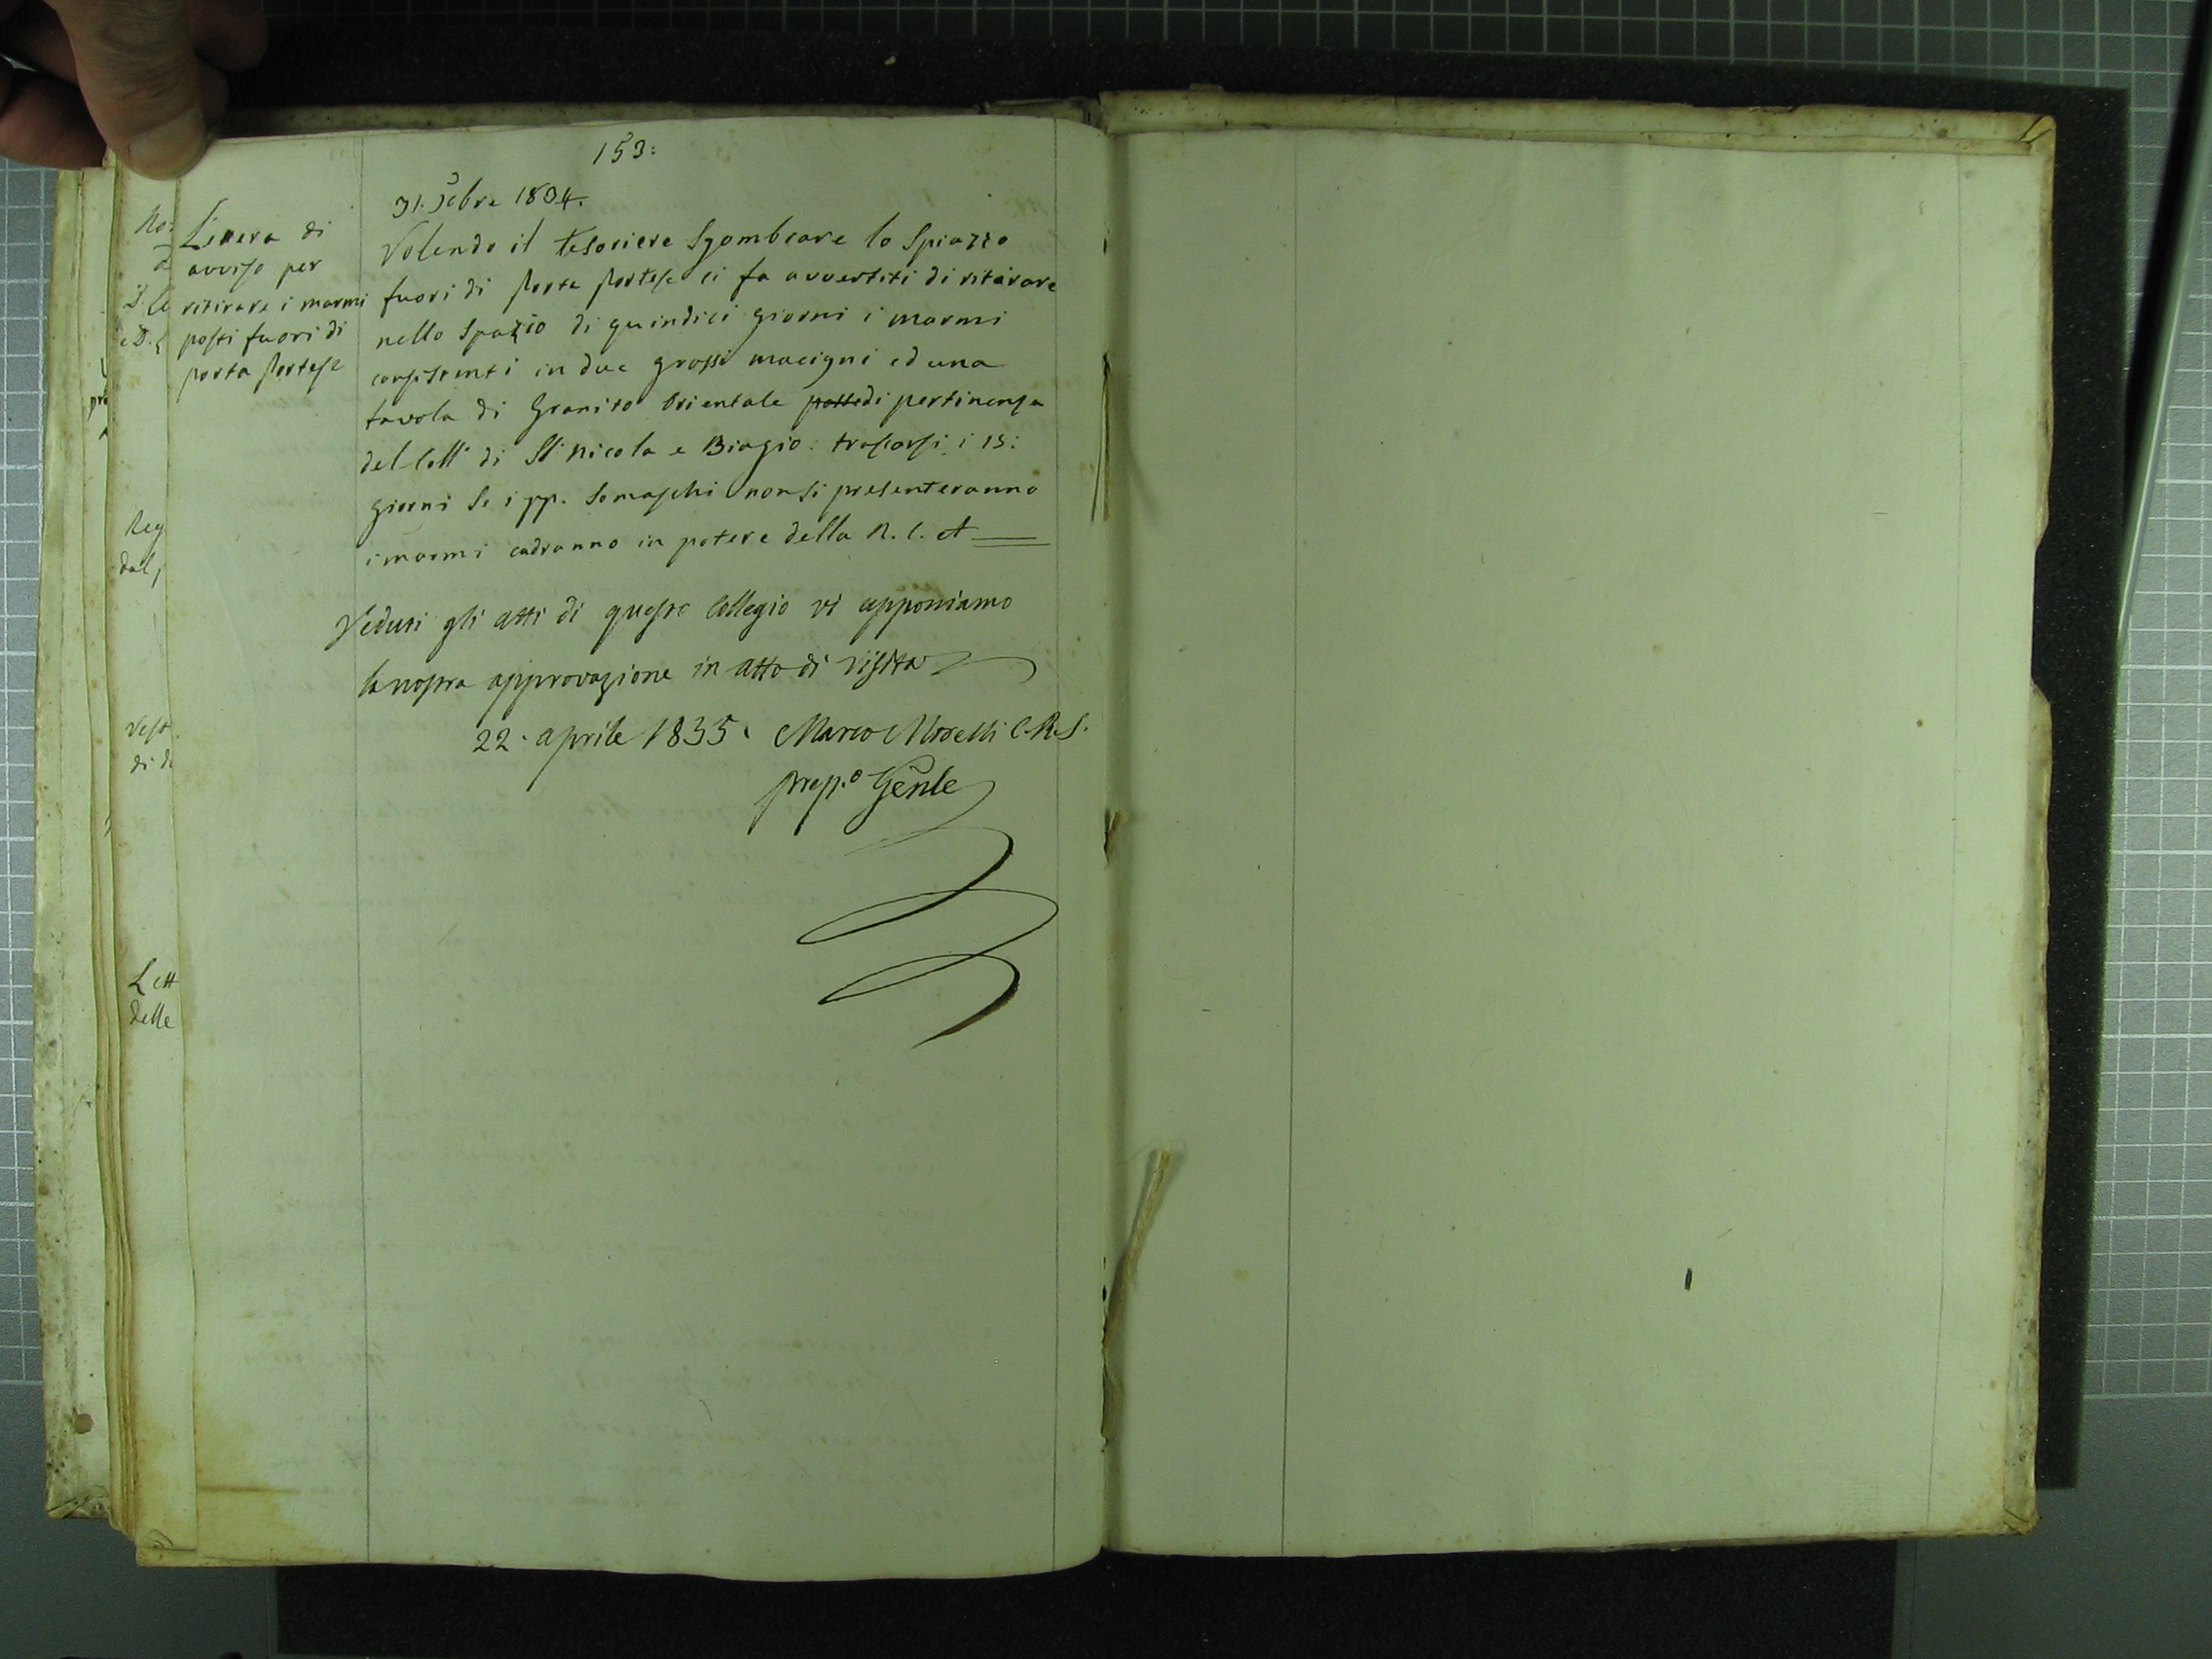 153:
31. Xbre 1834.
Lettera di
avviso per
ritirare i marmi
posti fuori di
porta Portese
Volendo il tesoriere sgombrare lo spiazzo
fuori di Porta Portese ci fa avvertiti di ritirare
nello spazio di quindici giorni i marmi
consistenti in due grossi macigni ed una
tavola di Granito Orientale di pertinenza
del Coll° di SS. Nicola e Biagio: trascorsi i 15:
giorni se i pp. Somaschi non si presenteranno
i marmi cadranno in potere della R. C. A
Veduti gli atti di questo Collegio vi apponiamo
la nostra approvazione in atto di visita
22. aprile 1835. Marco Morelli C.R.S.
prep.° Genle
Reg
dal
Vest.
di d
Lett
delle